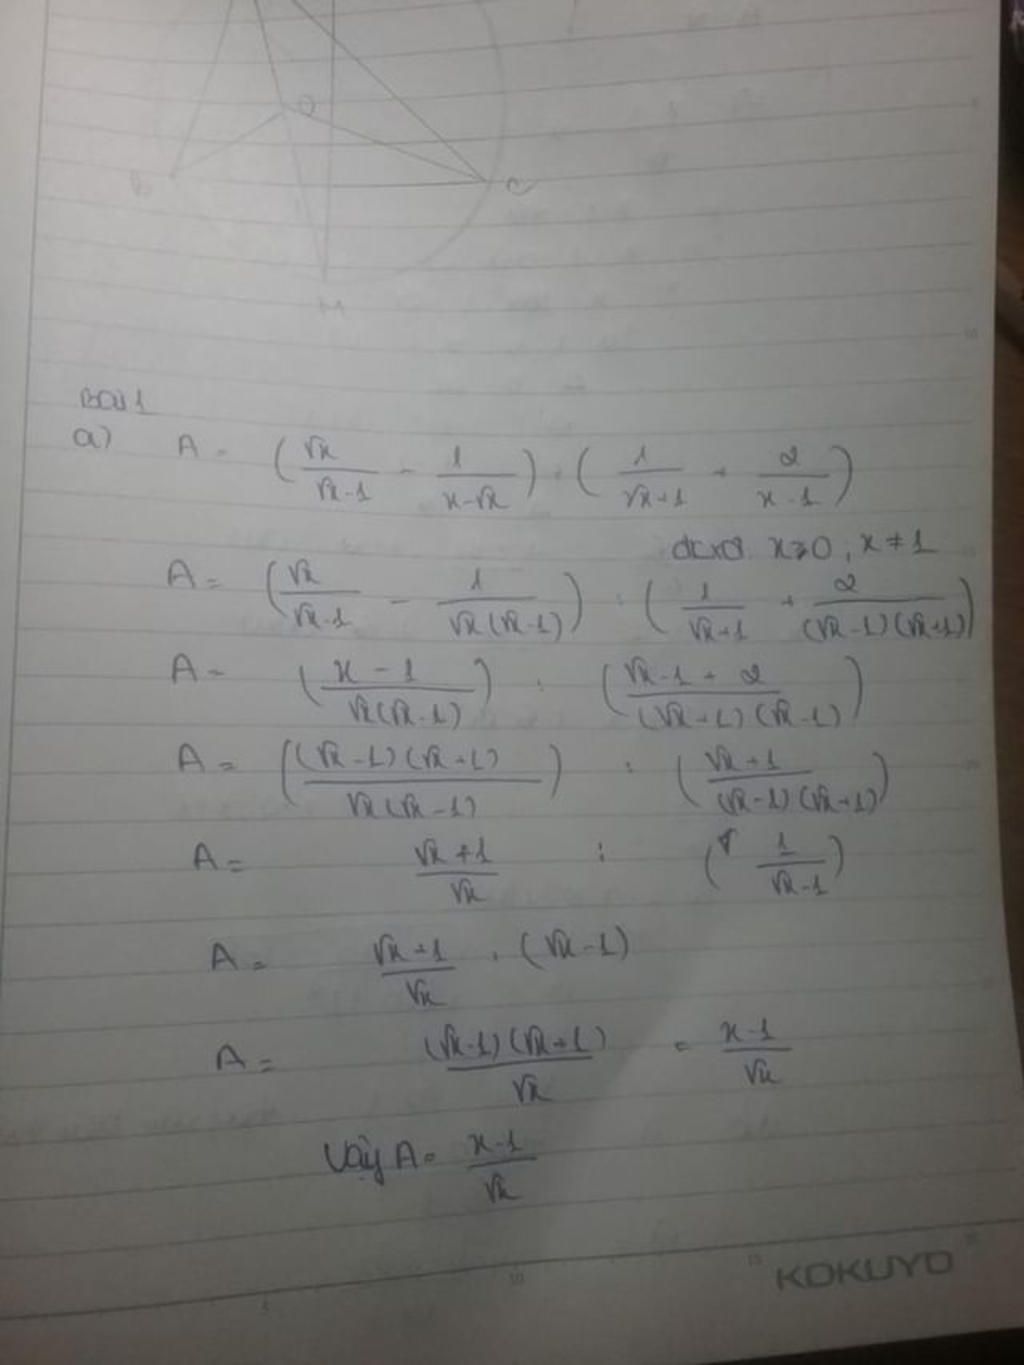 O
B
C
M
Bài 1
a) A = (√x/(√x-1) - 1/(x-√x)) : (1/(√x+1) + 2/(x-1))
đkxđ x≥0, x≠1
A = (√x/(√x-1) - 1/(√x(√x-1))) : (1/(√x+1) + 2/((√x-1)(√x+1)))
A = ((x-1)/(√x(√x-1))) : ((√x-1+2)/((√x+1)(√x-1)))
A = (((√x-1)(√x+1))/(√x(√x-1))) : ((√x+1)/((√x-1)(√x+1)))
A = (√x+1)/√x : (1/(√x-1))
A = (√x+1)/√x . (√x-1)
A = ((√x-1)(√x+1))/√x = (x-1)/√x
Vậy A = (x-1)/√x
5 10 15
KOKUYO